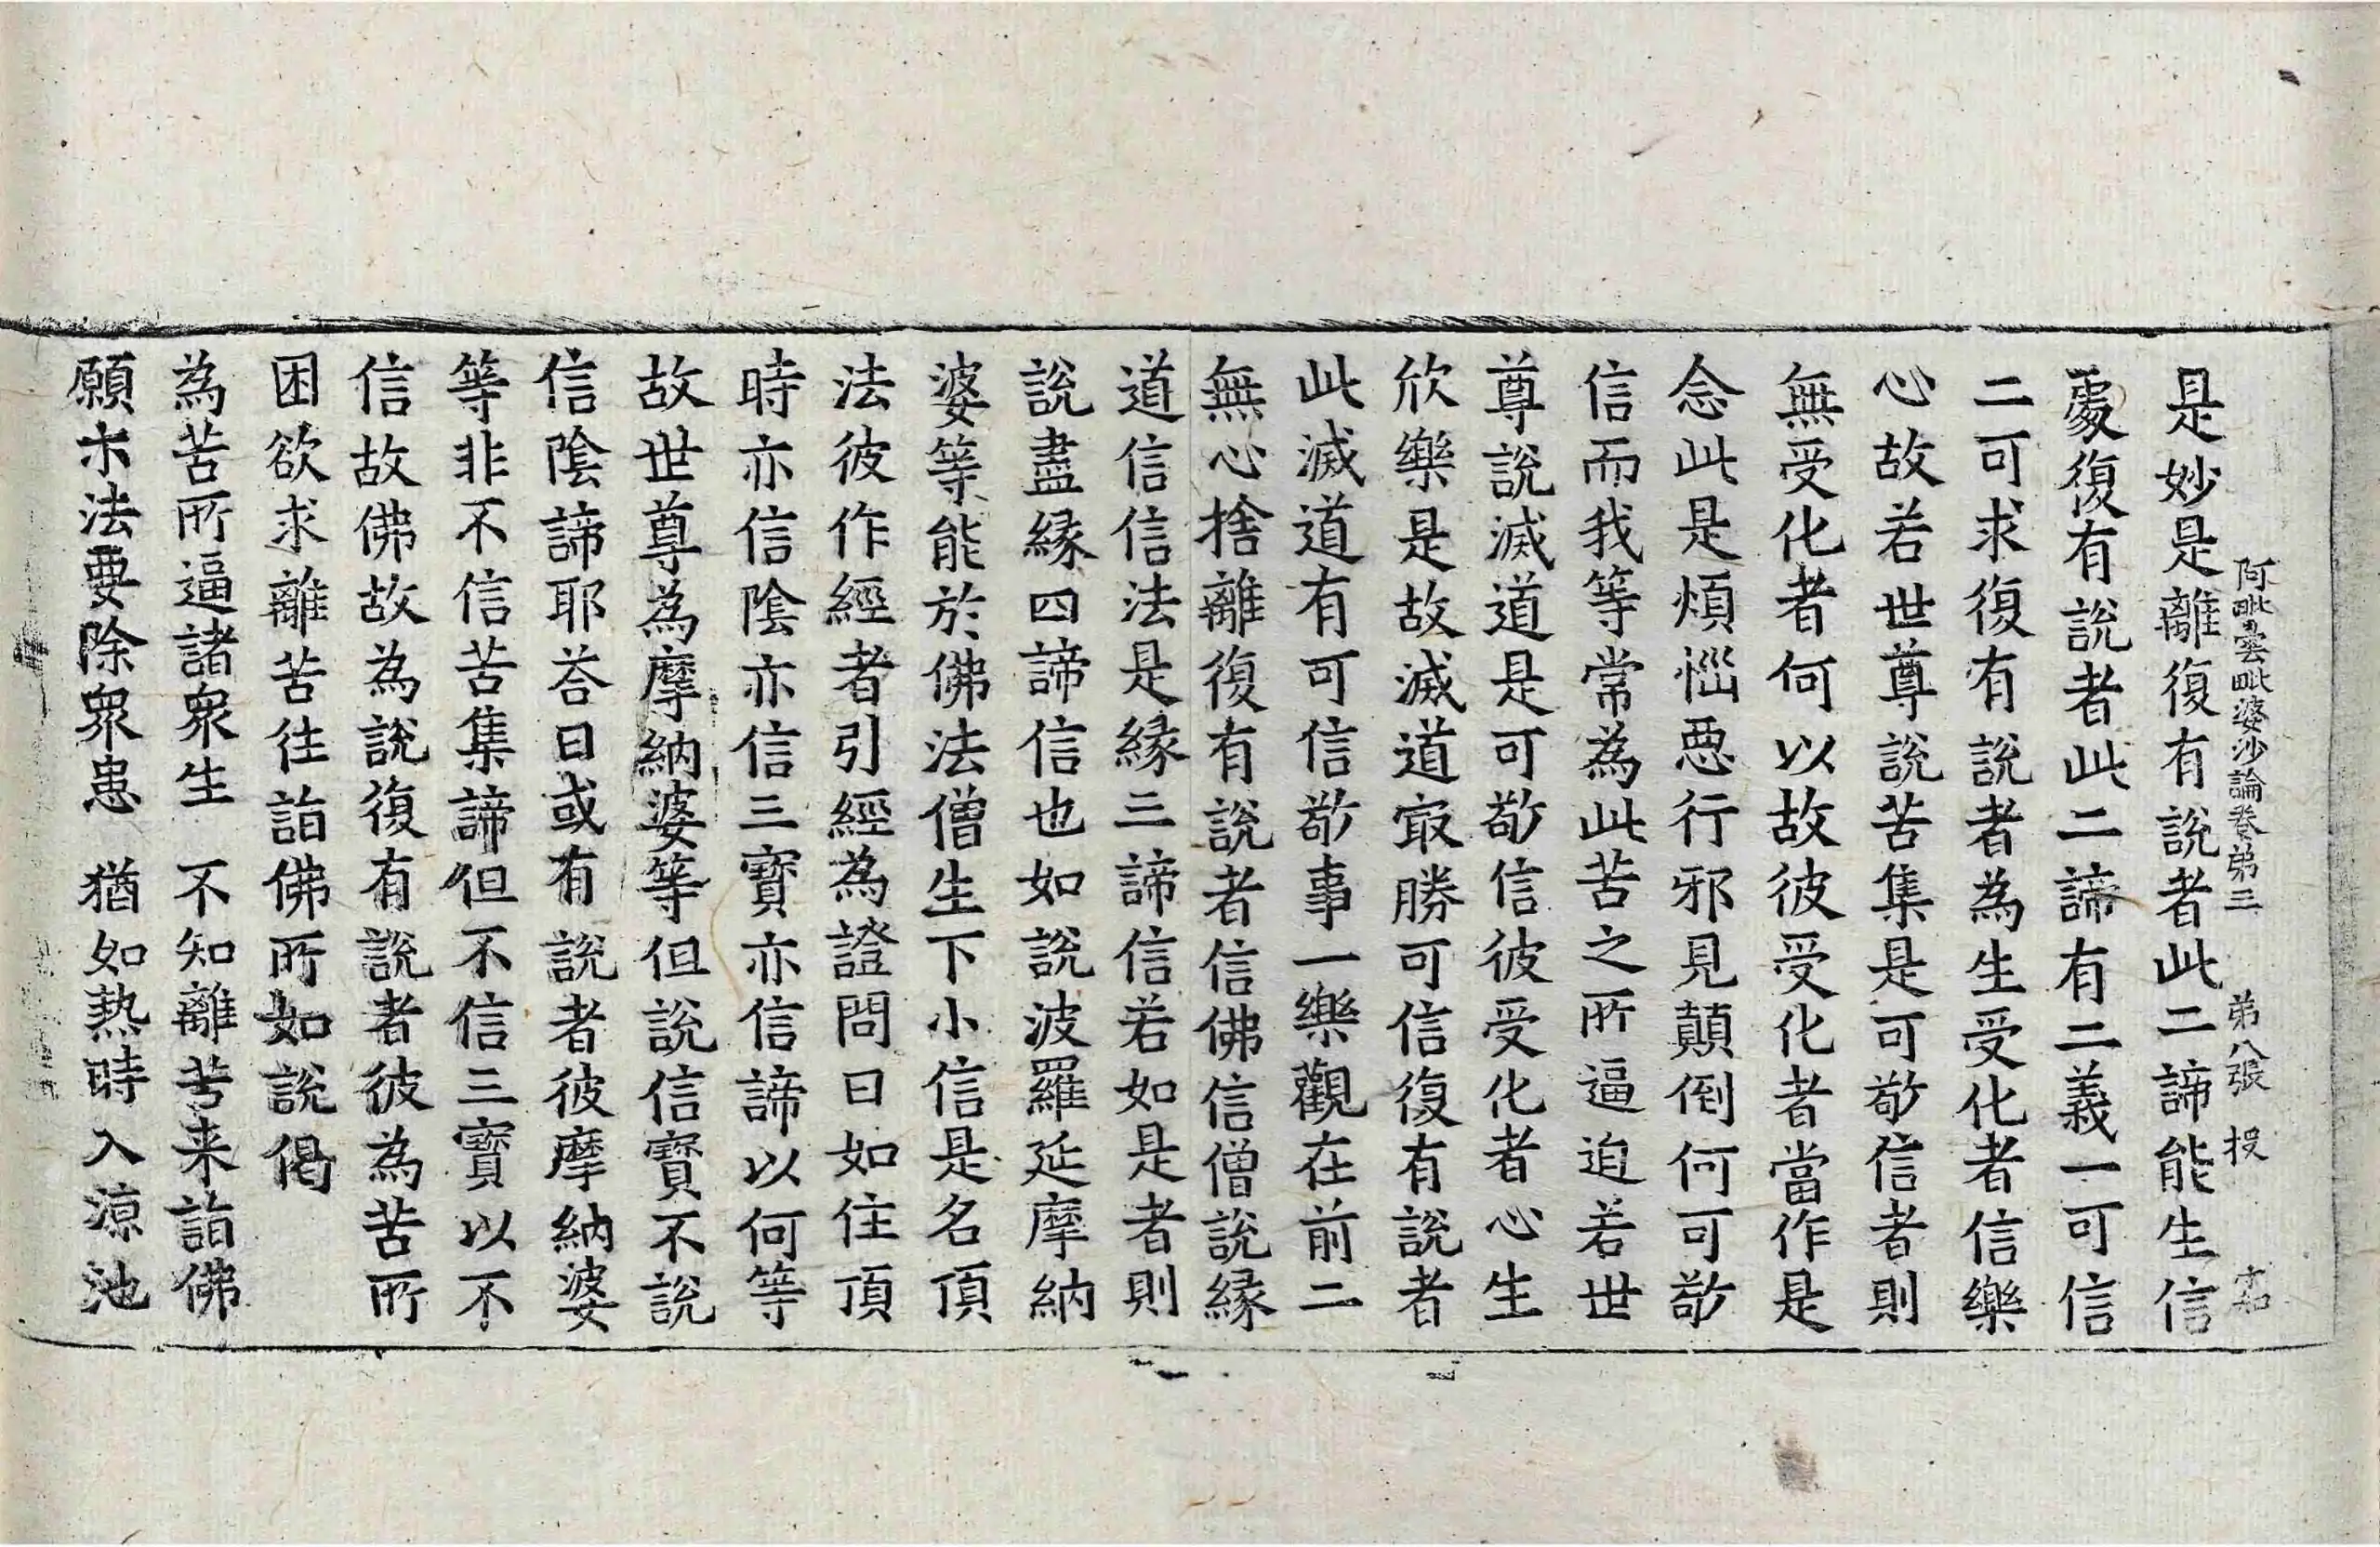 阿毗曇毗婆沙論卷第三　第八張　投
是妙是離復有說者此二諦能生信
處復有說者此二諦有二義一可信
二可求復有說者為生受化者信樂
心故若世尊說苦集是可敬信者則
無受化者何以故彼受化者當作是
念此是煩惱惡行邪見顛倒何可敬
信而我等常為此苦之所逼迫若世
尊說滅道是可敬信彼受化者心生
欣樂是故滅道㝡勝可信復有說者
此滅道有可信敬事一樂觀在前二
無心捨離復有說者信佛信僧說緣
道信信法是緣三諦信若如是者則
說盡緣四諦信也如說波羅延摩納
婆等能於佛法僧生下小信是名頂
法彼作經者引經為證問曰如住頂
時亦信陰亦信三寶亦信諦以何等
故世尊為摩納婆等但說信寶不說
信陰諦耶荅曰或有說者彼摩納婆
等非不信苦集諦但不信三寶以不
信故佛故為說復有說者彼為苦所
困欲求離苦往詣佛所如說偈
為苦所逼諸衆生　不知離苦来詣佛
願求法要除衆患　猶如熱時入涼池